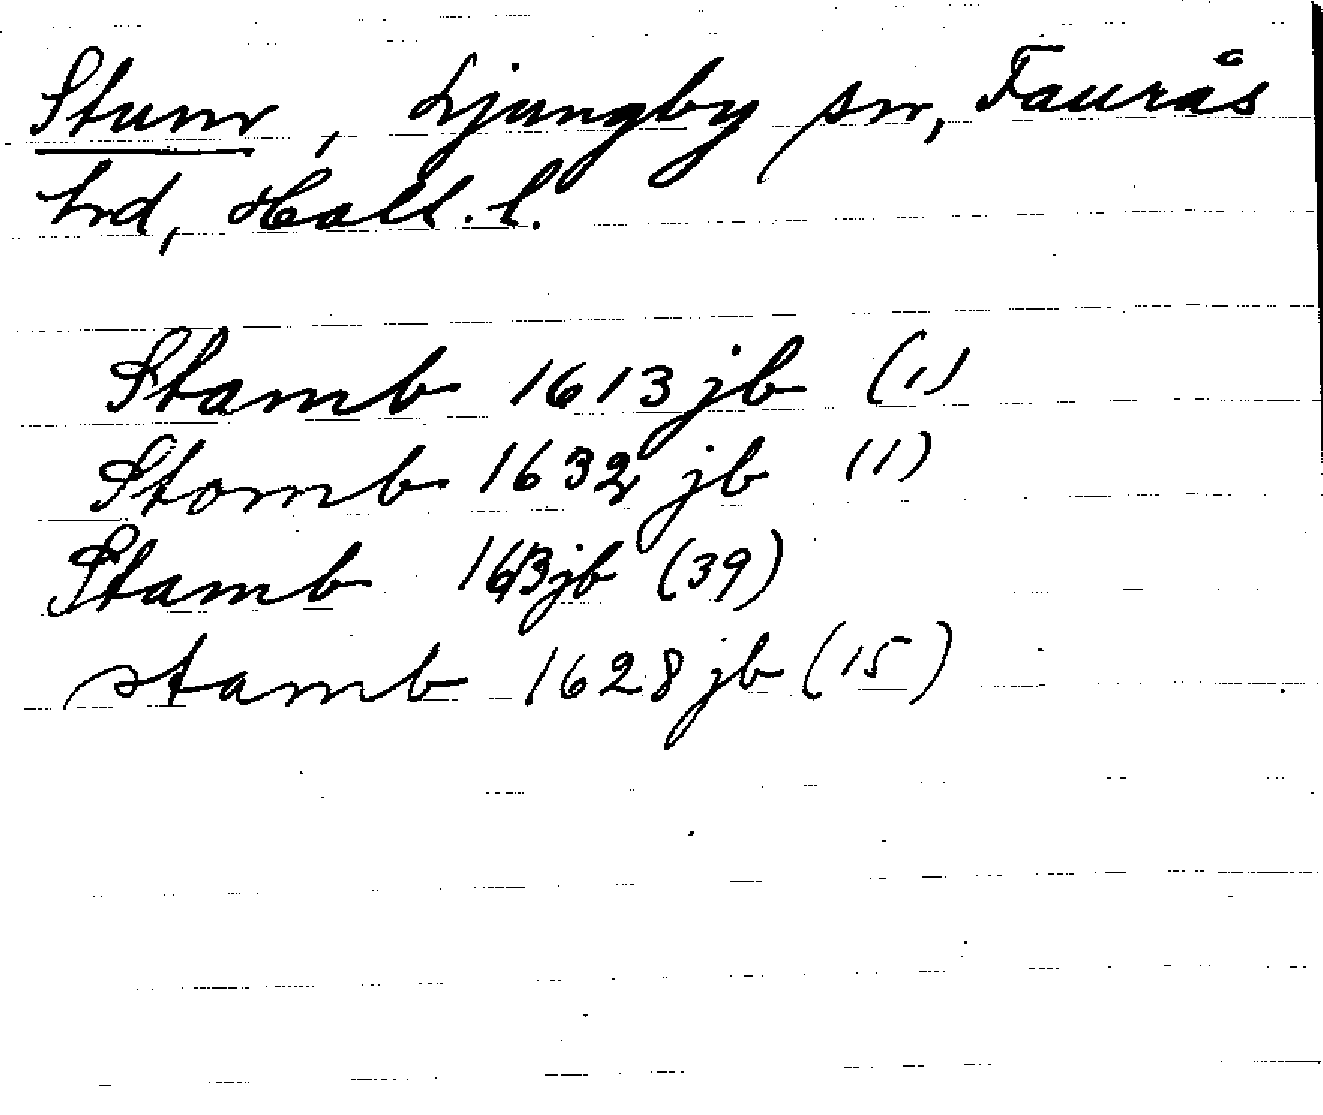 Stum, Ljungby sn, Faurås
hrd, Hall. l.
Stamb 1613 jb (1)
Stomb 1632 jb (1)
Stamb jb (39)
stamb 1628 jb (15)